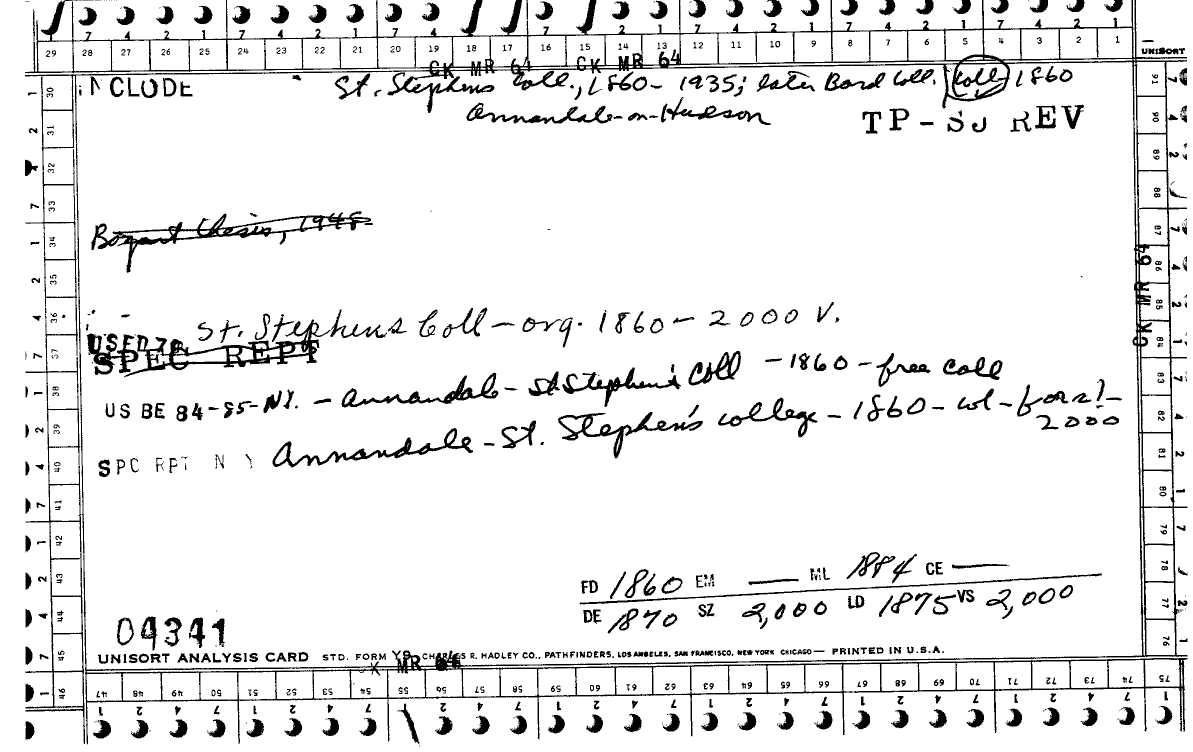 7 4 2 1 7 4 2 1 7 4 2 1 7 4 2 1 7 4 2 1 7 4 2 1 7 4 2 1
29 28 27 26 25 24 23 22 21 20 19 18 17 16 15 14 13 12 11 10 9 8 7 6 5 4 3 2 1 UNISORT
CK MR 64 CK MR 64
INCLUDE St. Stephens Coll., 1860-1935; later Bard Coll. Coll 1860
Annandale-on-Hudson
TP-SJ REV
Bogart thesis, 1948
St. Stephens Coll - org. 1860 - 2000 V.
USED 70
SPEC REPT
US BE 84-85-N.Y. - Annandale - St Stephen's Coll - 1860 - free coll
Annandale - St. Stephen's college - 1860 - col -
2000
SPC RPT N Y
CK MR 64
FD 1860 EM — ML 1884 CE —
DE 1870 SZ 2,000 LD 1875 VS 2,000
04341
UNISORT ANALYSIS CARD STD. FORM Y9 CHARLES R. HADLEY CO., PATHFINDERS, LOS ANGELES, SAN FRANCISCO, NEW YORK CHICAGO — PRINTED IN U.S.A.
CK MR 64
46 47 48 49 50 51 52 53 54 55 56 57 58 59 60 61 62 63 64 65 66 67 68 69 70 71 72 73 74 75